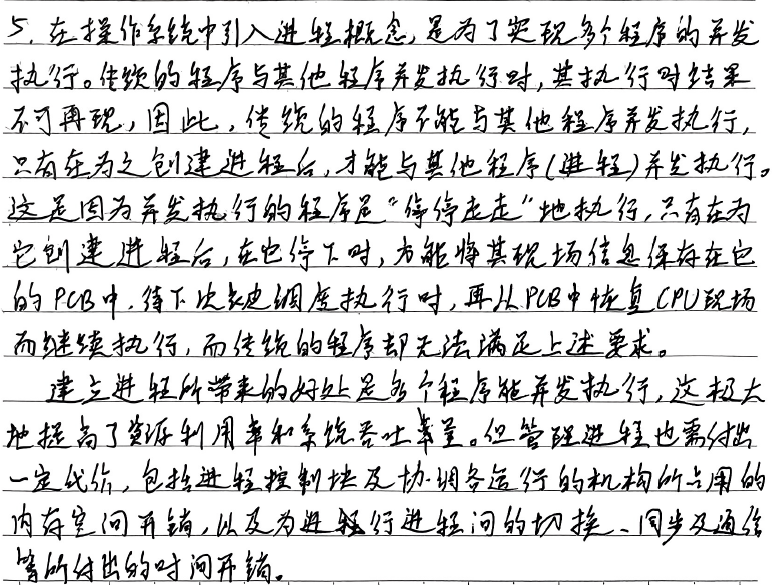 5. 在操作系统中引入进程概念，是为了实现多个程序的并发
执行。传统的程序与其他程序并发执行时，其执行时结果
不可再现，因此，传统的程序不能与其他程序并发执行，
只有在为之创建进程后，才能与其他程序(进程)并发执行。
这是因为并发执行的程序是“停停走走”地执行，只有在为
它创建进程后，在它停下时，方能将其现场信息保存在它
的PCB中，待下次被调度执行时，再从PCB中恢复CPU现场
而继续执行，而传统的程序却无法满足上述要求。
建立进程所带来的好处是多个程序能并发执行，这极大
地提高了资源利用率和系统吞吐量。但管理进程也需付出
一定代价，包括进程控制块及协调各运行的机构所占用的
内存空间开销，以及为进行进程间的切换、同步及通信
等所付出的时间开销。